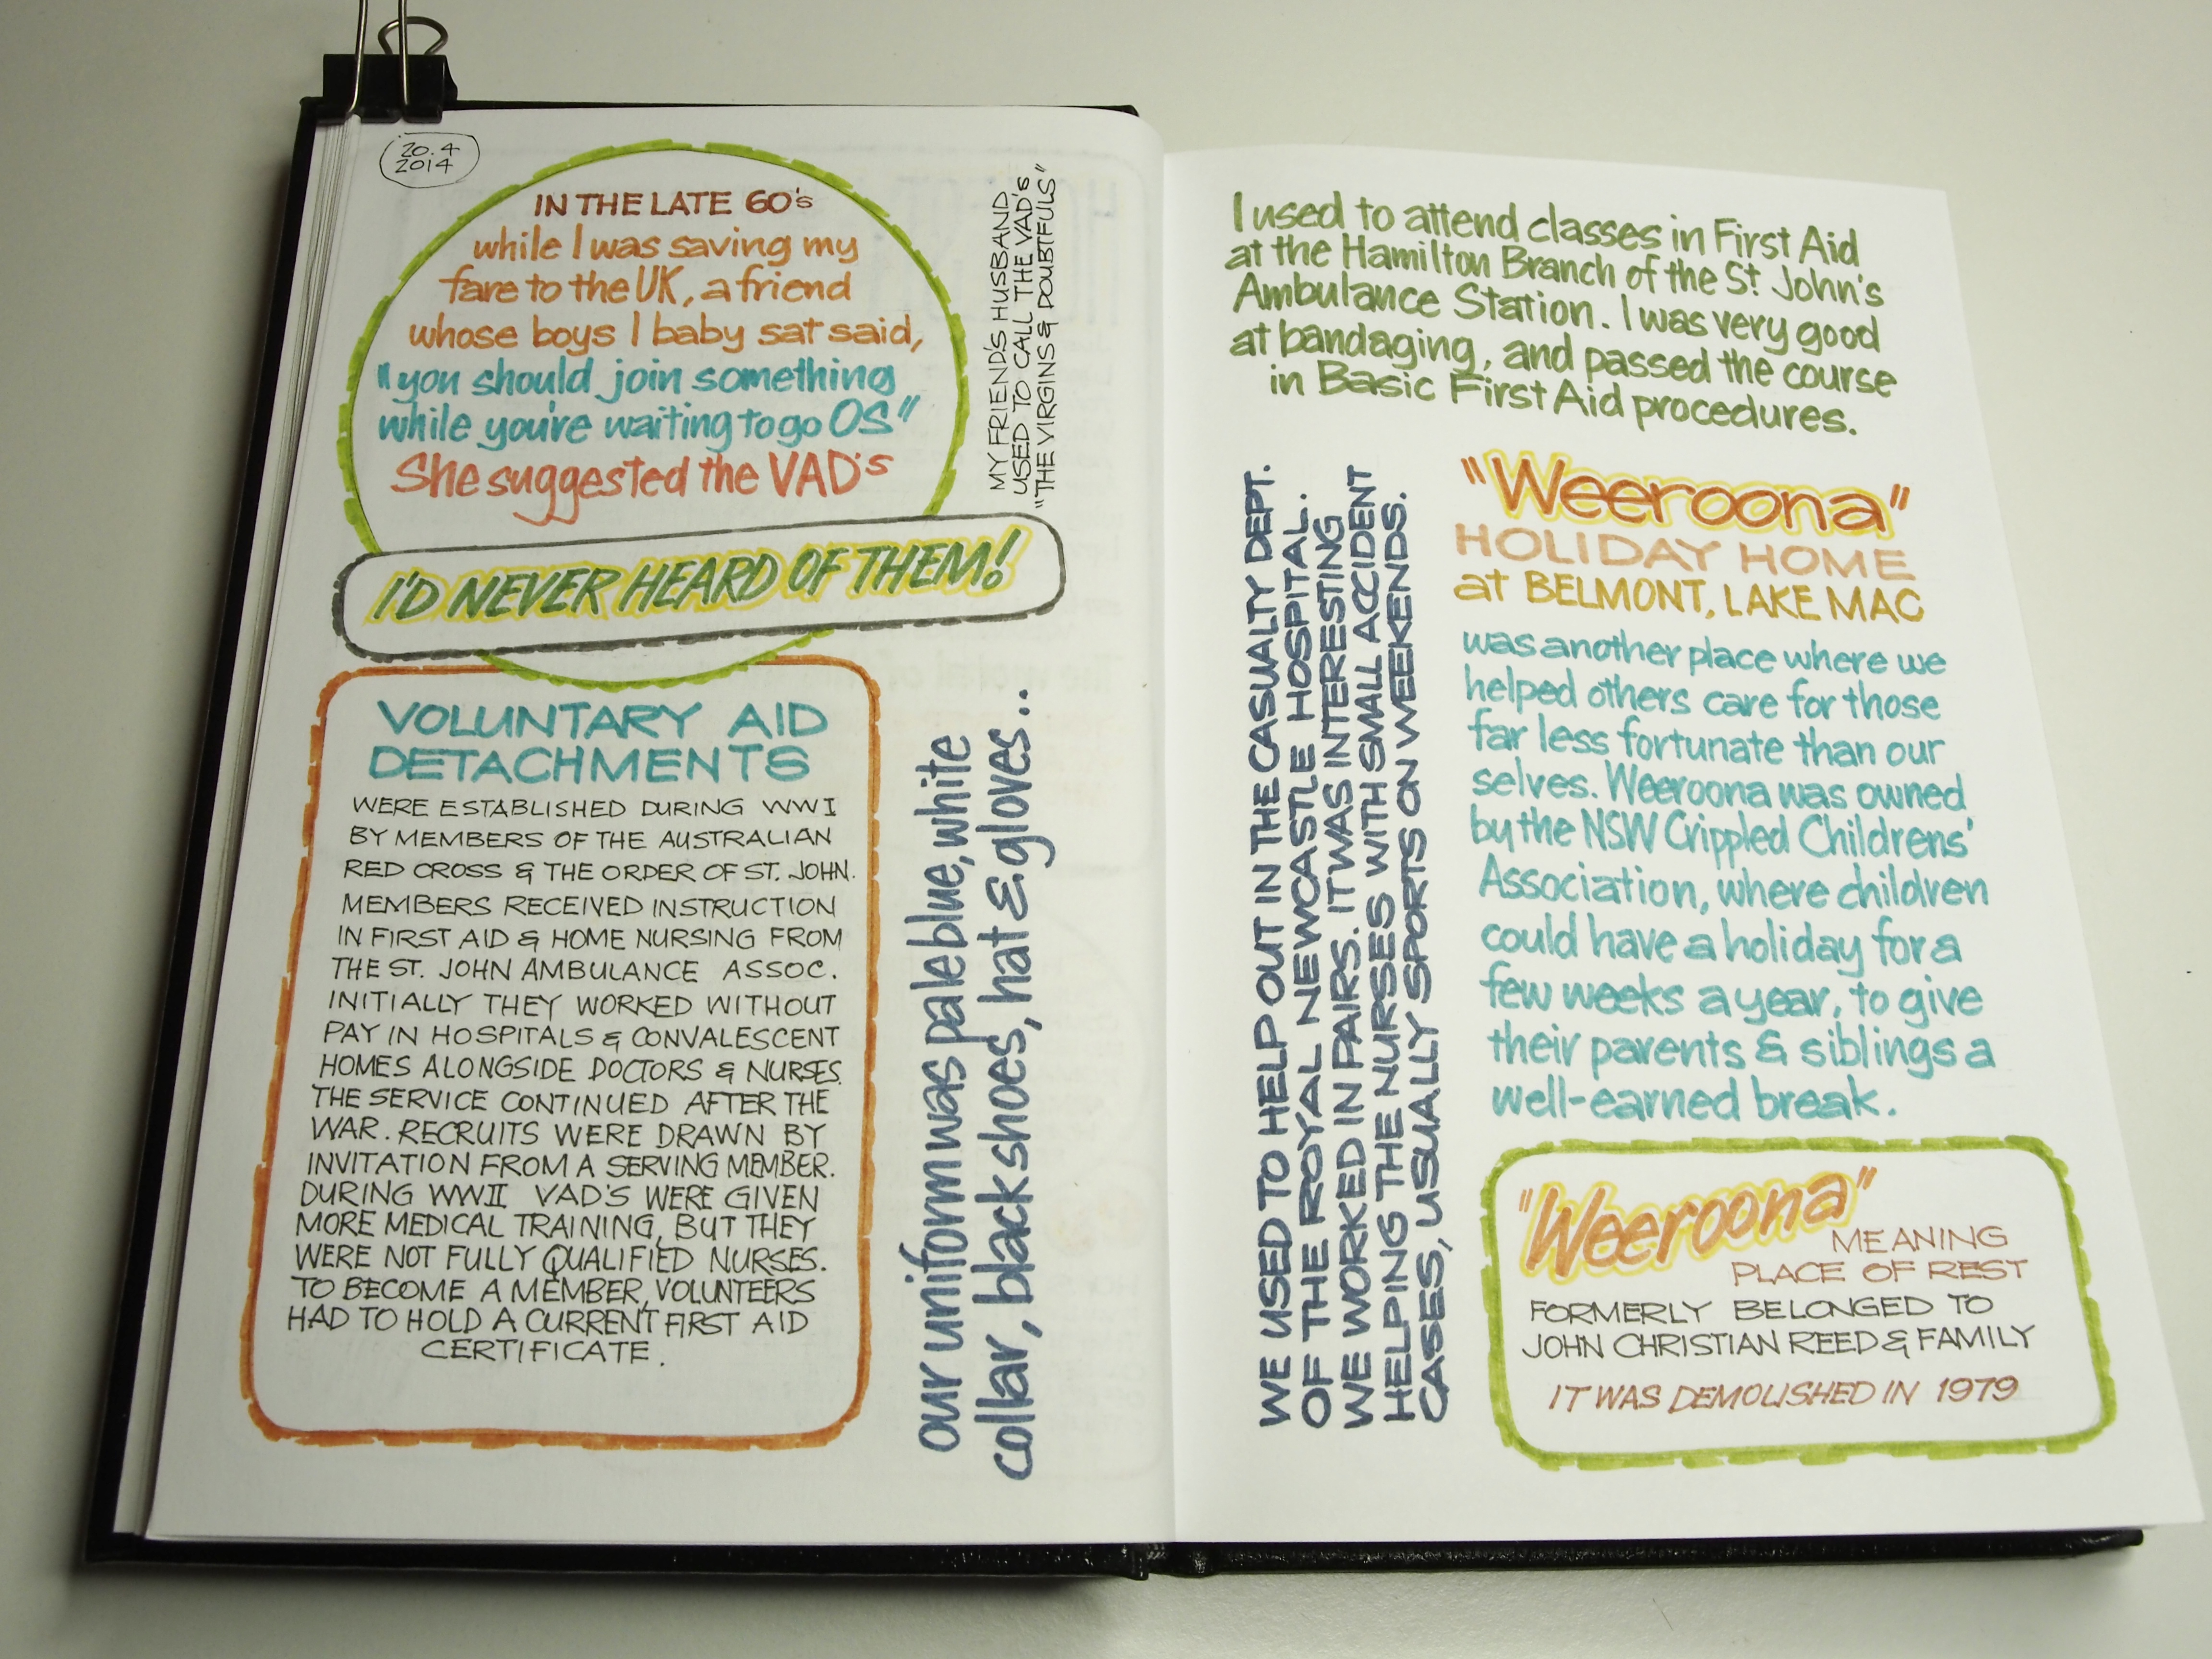 20.4
2014
IN THE LATE 60's
while I was saving my
fare to the UK, a friend
whose boys I baby sat said,
"you should join something
while you're waiting to go OS"
She suggested the VAD's
I'D NEVER HEARD OF THEM!
MY FRIEND'S HUSBAND
USED TO CALL THE VAD's
"THE VIRGINS & DOUBTFULS"
VOLUNTARY AID
DETACHMENTS
WERE ESTABLISHED DURING WWI
BY MEMBERS OF THE AUSTRALIAN
RED CROSS & THE ORDER OF ST. JOHN.
MEMBERS RECEIVED INSTRUCTION
IN FIRST AID & HOME NURSING FROM
THE ST. JOHN AMBULANCE ASSOC.
INITIALLY THEY WORKED WITHOUT
PAY IN HOSPITALS & CONVALESCENT
HOMES ALONGSIDE DOCTORS & NURSES.
THE SERVICE CONTINUED AFTER THE
WAR. RECRUITS WERE DRAWN BY
INVITATION FROM A SERVING MEMBER.
DURING WWII VAD'S WERE GIVEN
MORE MEDICAL TRAINING, BUT THEY
WERE NOT FULLY QUALIFIED NURSES.
TO BECOME A MEMBER, VOLUNTEERS
HAD TO HOLD A CURRENT FIRST AID
CERTIFICATE.
our uniform was pale blue, white
collar, black shoes, hat & gloves...
I used to attend classes in First Aid
at the Hamilton Branch of the St John's
Ambulance Station. I was very good
at bandaging, and passed the course
in Basic First Aid procedures.
WE USED TO HELP OUT IN THE CASUALTY DEPT.
OF THE ROYAL NEWCASTLE HOSPITAL.
WE WORKED IN PAIRS. IT WAS INTERESTING
HELPING THE NURSES WITH SMALL ACCIDENT
CASES, USUALLY SPORTS ON WEEKENDS.
"Weeroona"
HOLIDAY HOME
at BELMONT, LAKE MAC
was another place where we
helped others care for those
far less fortunate than our
selves. Weeroona was owned
by the NSW Crippled Childrens'
Association, where children
could have a holiday for a
few weeks a year, to give
their parents & siblings a
well-earned break.
"Weeroona"
MEANING
PLACE OF REST
FORMERLY BELONGED TO
JOHN CHRISTIAN REED & FAMILY
IT WAS DEMOLISHED IN 1979